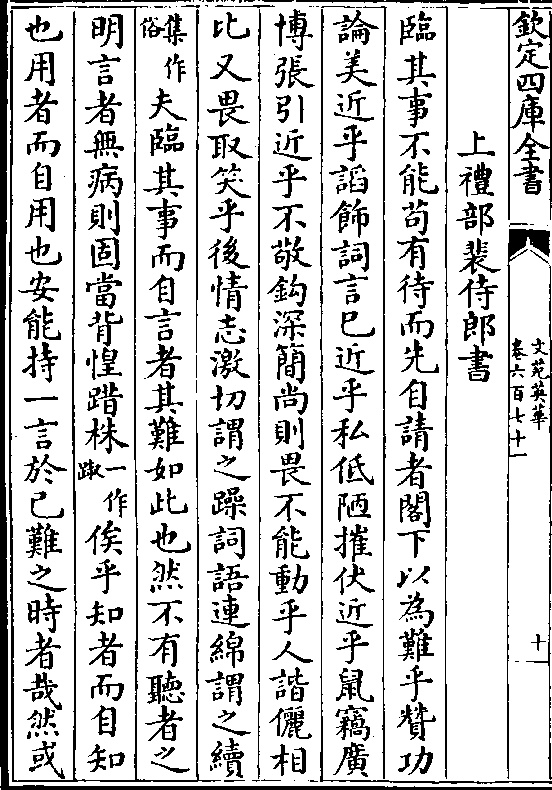 欽定四庫全書
文苑英華
卷六百七十一
十一
上禮部裴侍郎書
臨其事不能苟有待而先自請者閣下以為難乎贊功
論美近乎謟飾詞言已近乎私低陋摧伏近乎鼠竊廣
博張引近乎不敬鈎深簡尚則畏不能動乎人諧儷相
比又畏取笑乎後情志激切謂之躁詞語連綿謂之續
集作俗夫臨其事而自言者其難如此也然不有聽者之
明言者無病則固當背惶踖株一作踧俟乎知者而自知
也用者而自用也安能持一言於已難之時者哉然或